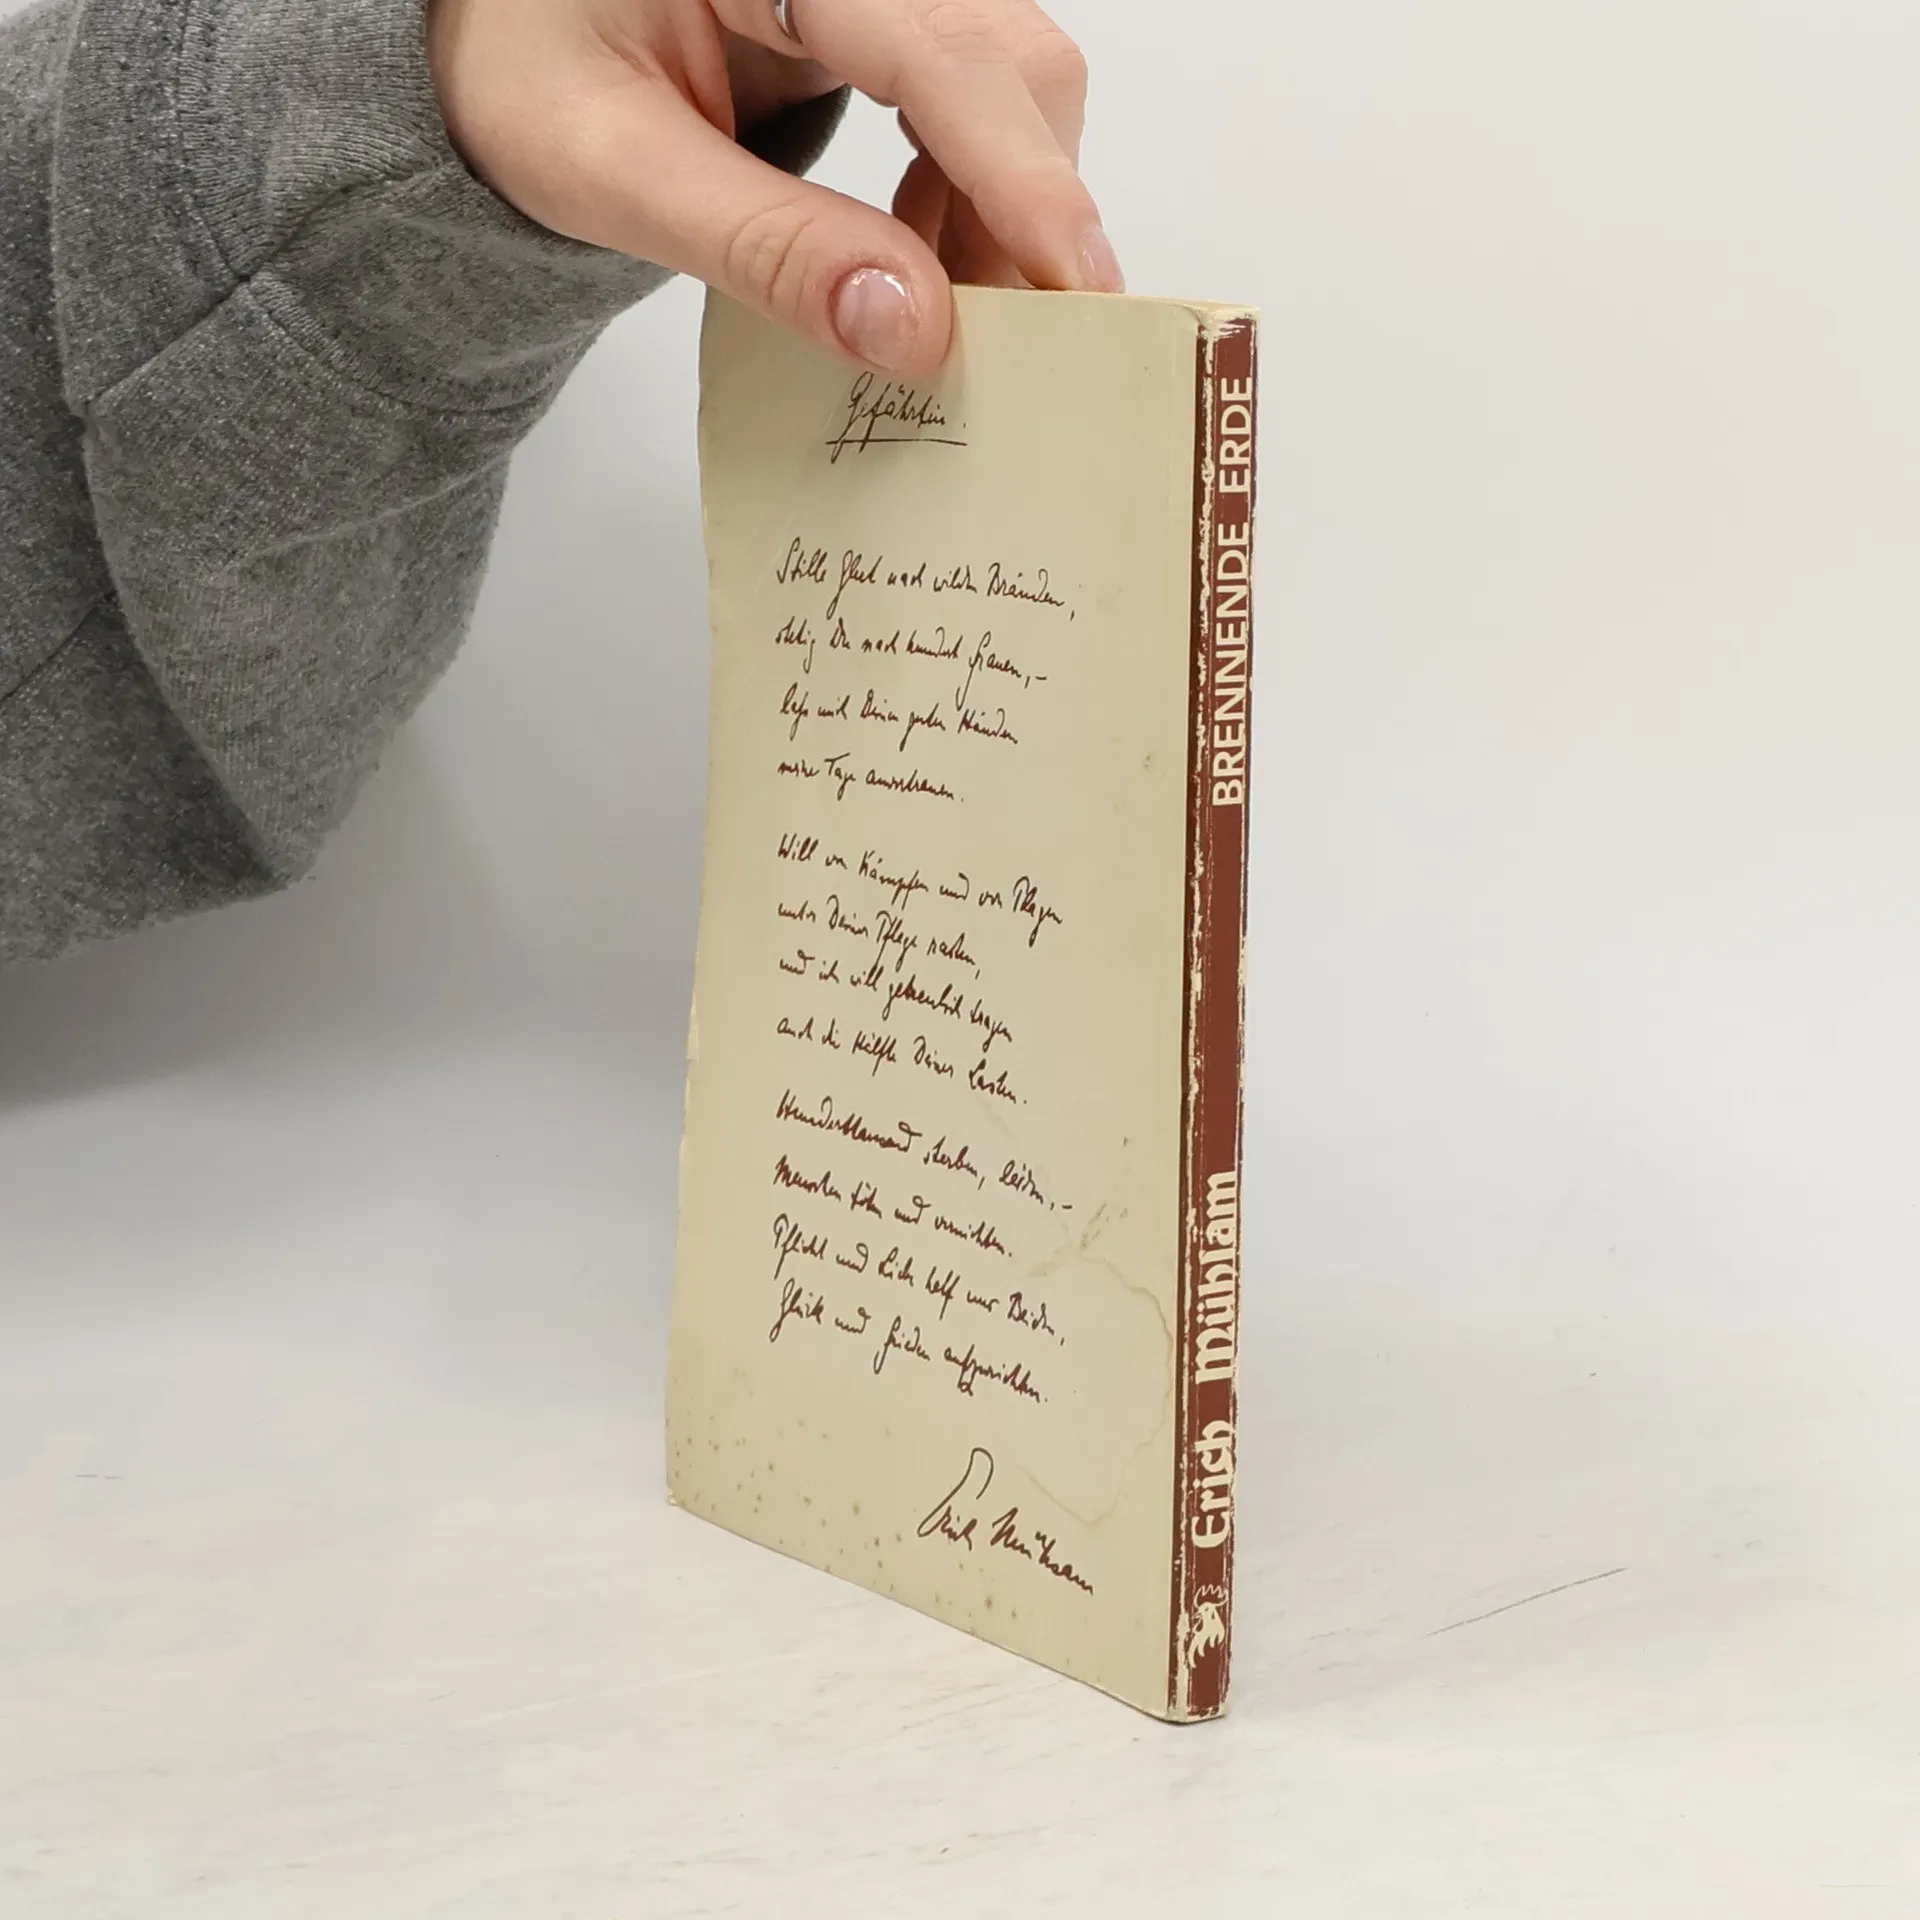 Gefährtin.
Stille Glut nach wilden Bränden,
stetig Du nach hundert Frauen, –
laß mich Deinen guten Händen
meine Tage anvertrauen.
Will von Kämpfen und von Plagen
unter Deiner Pflege rasten,
und ich will getreulich tragen
auch die Hälfte Deiner Lasten.
Hunderttausend sterben, leiden, –
Menschen töten und vernichten.
Pflicht und Liebe helf uns Beiden,
Glück und Frieden aufzurichten.
Erich Mühsam
BRENNENDE ERDE
Erich Mühsam